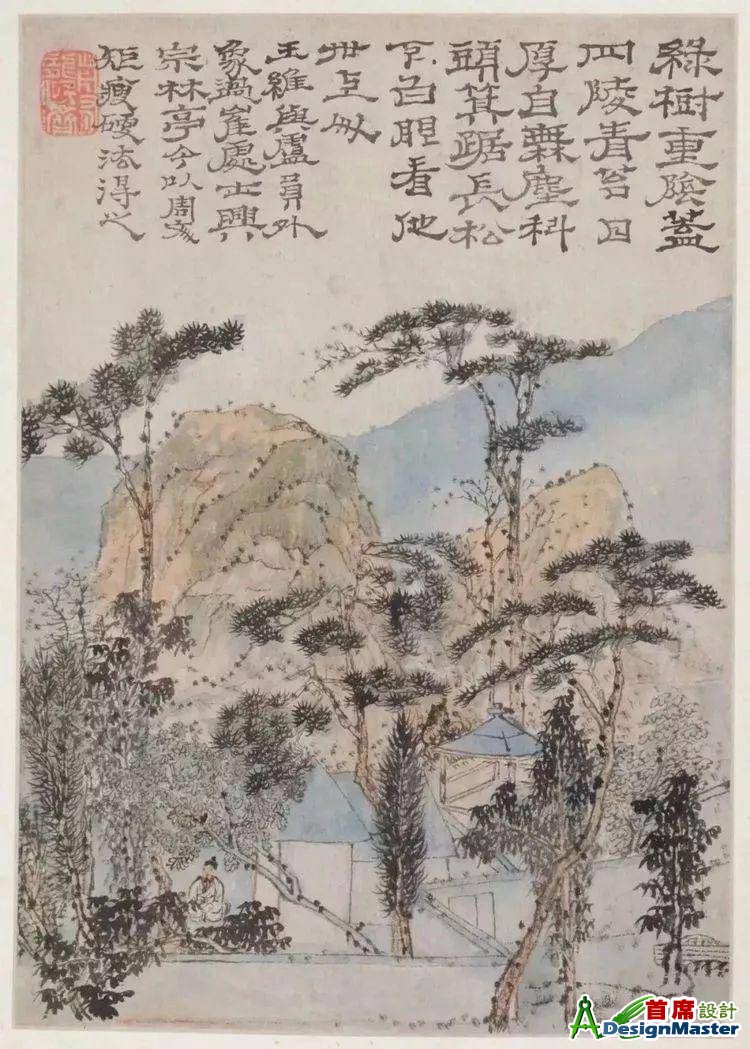 綠樹重陰蓋
四隣青苔日
厚自無塵科
頭箕踞長松
下白眼看他
世上人
王維與盧員外
象過崔處士興
宗林亭今以周文
矩瘦硬法得之
首席設計
DesignMaster